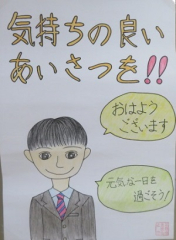 気持ちの良い
あいさつを!!
おはよう
ございます
元気な一日を
過ごそう!